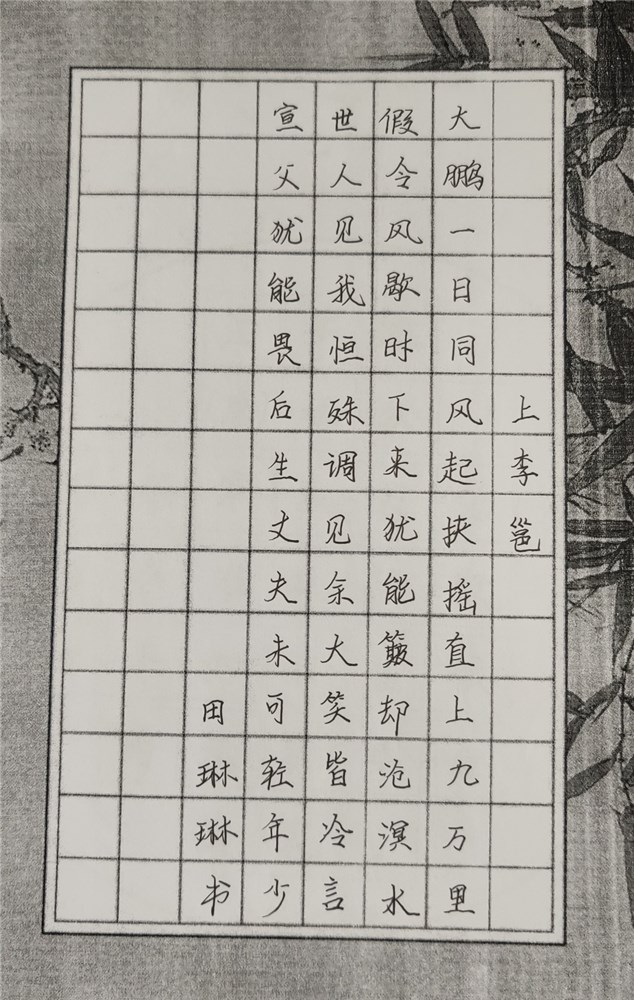 上李邕
大鹏一日同风起扶摇直上九万里
假令风歇时下来犹能簸却沧溟水
世人见我恒殊调见余大笑皆冷言
宣父犹能畏后生丈夫未可轻年少
田琳琳书